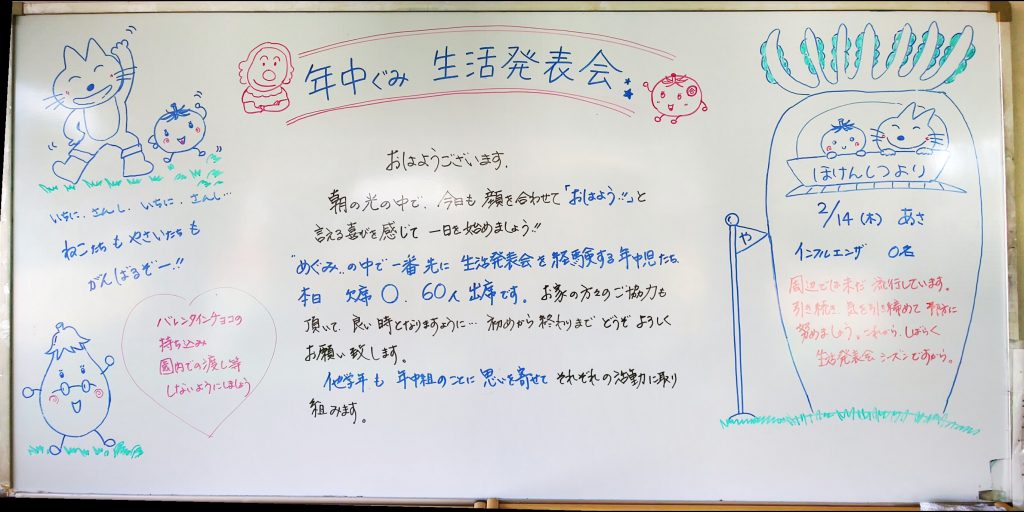 年中ぐみ 生活発表会
おはようございます.
朝の光の中で、今日も 顔を合わせて「おはよう!!」と
言える喜びを感じて 一日を始めましょう!!
"めぐみ"の中で一番先に 生活発表会を経験する年中児たち
本日 欠席 〇、60人 出席です。お家の方々のご協力も
頂いて、良い時となりますように… 初めから終わりまで どうぞよろしく
お願い致します。
他学年も 年中組のことに思いを寄せて それぞれの活動に取り
組みます。
いちに、さんし、いちに、さんし…
ねこたちも やさいたちも
がんばるぞー!!
バレンタインチョコの
持ち込み
園内での渡し等
しないようにしましょう
や
ほけんしつより
2/14(木) あさ
インフルエンザ 0名
周辺では未だ流行しています。
引き続き、気を引き締めて 予防に
努めましょう。これから、しばらく
生活発表会シーズンですから。